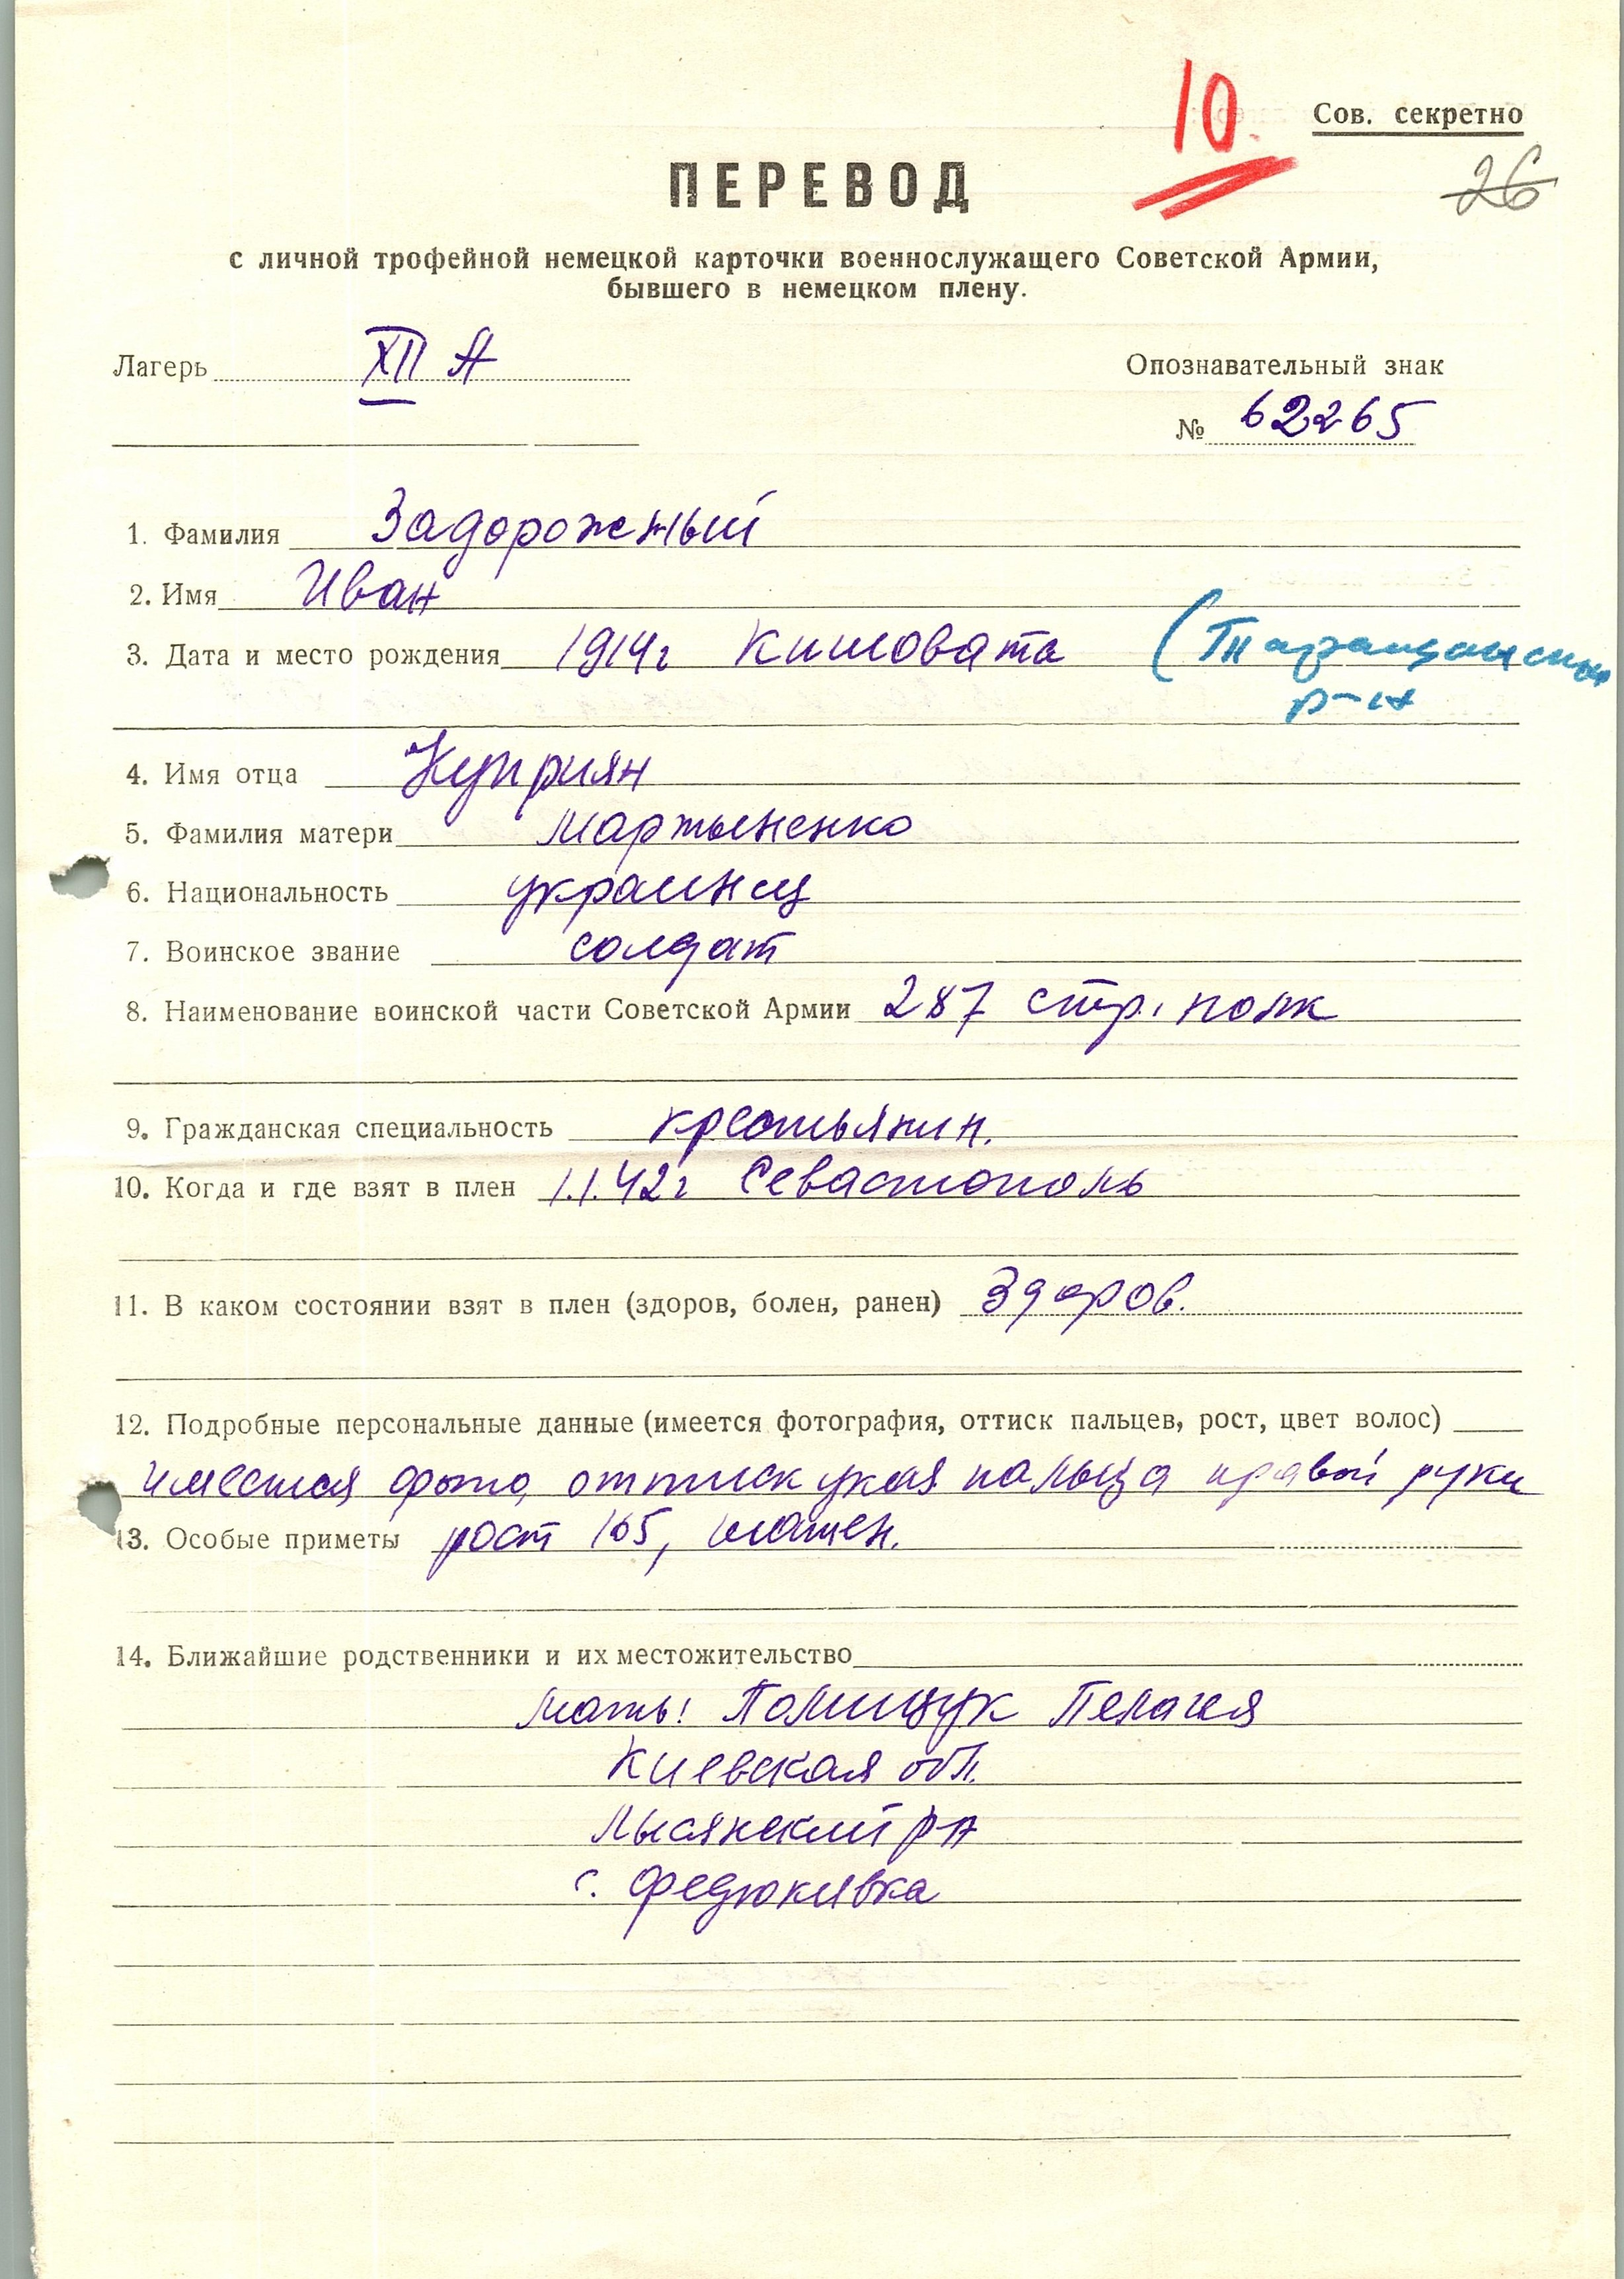 10.
Сов. секретно
26
ПЕРЕВОД
с личной трофейной немецкой карточки военнослужащего Советской Армии,
бывшего в немецком плену.
Лагерь XII А
Опознавательный знак
№ 62265
1. Фамилия Задорожный
2. Имя Иван
3. Дата и место рождения 1914г Кишовата (Таращанский
р-н
4. Имя отца Куприян
5. Фамилия матери Мартыненко
6. Национальность украинец
7. Воинское звание солдат
8. Наименование воинской части Советской Армии 287 стр. полк
9. Гражданская специальность крестьянин.
10. Когда и где взят в плен 1.1.42г Севастополь
11. В каком состоянии взят в плен (здоров, болен, ранен) Здоров.
12. Подробные персональные данные (имеется фотография, оттиск пальцев, рост, цвет волос)
имеется фото, оттиск указ. пальца правой руки
13. Особые приметы рост 165,
14. Ближайшие родственники и их местожительство
мать: Полищук Пелагея
Киевская обл.
Лысянский рн
с. Федюкивка